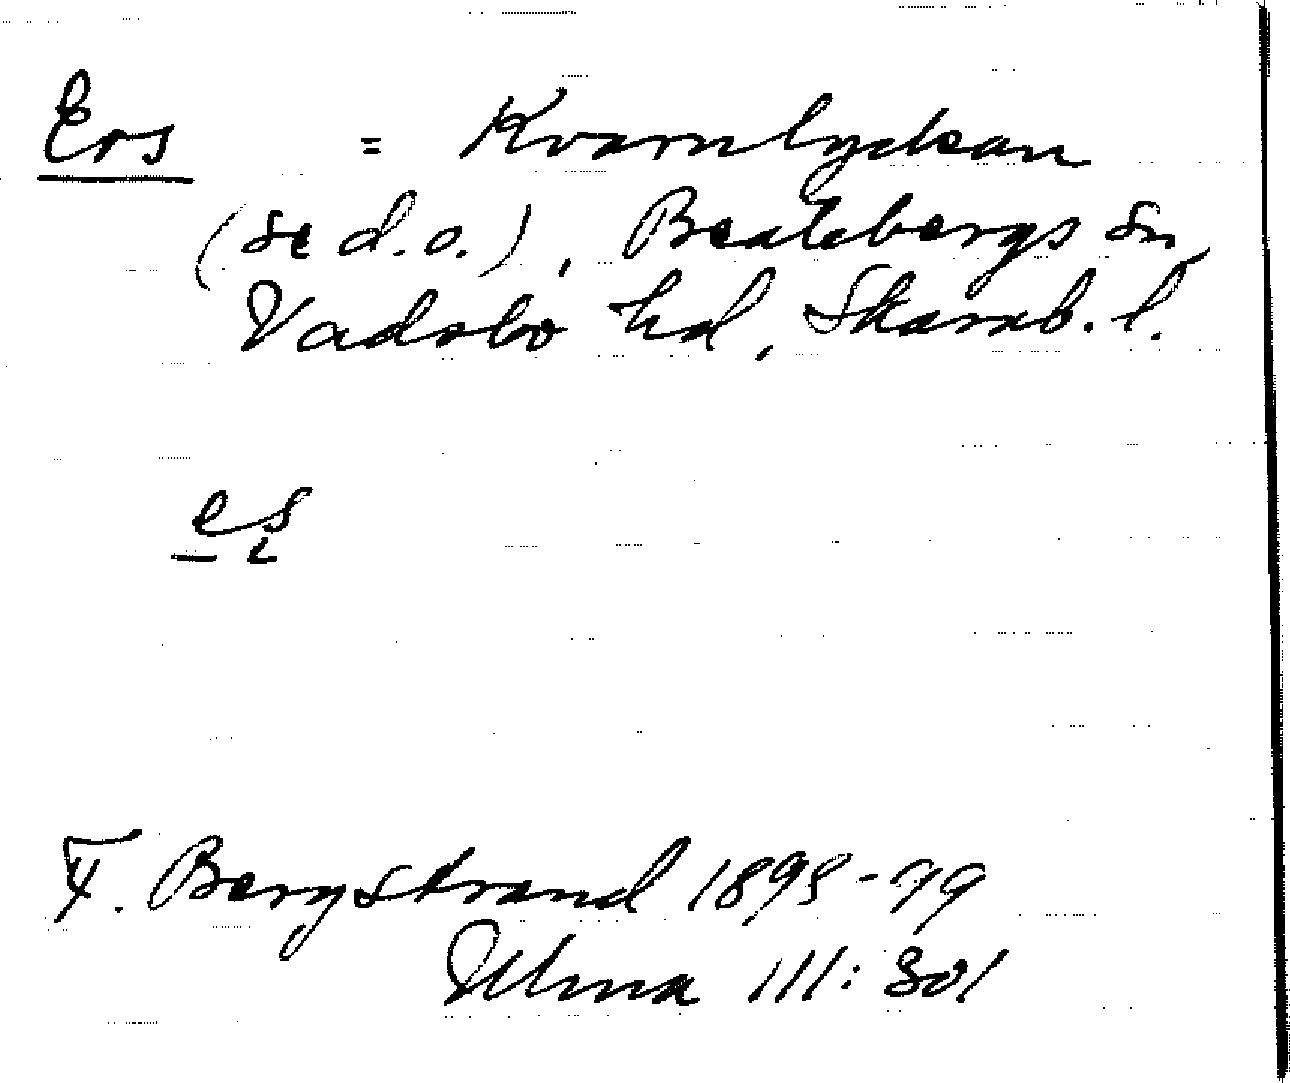 Ers = Kvarnlyckan
(se d.o.), Beatebergs sn,
Vadsbo hd, Skarab. l.
es
F. Bergstrand 1898-99
Ulma 111:301